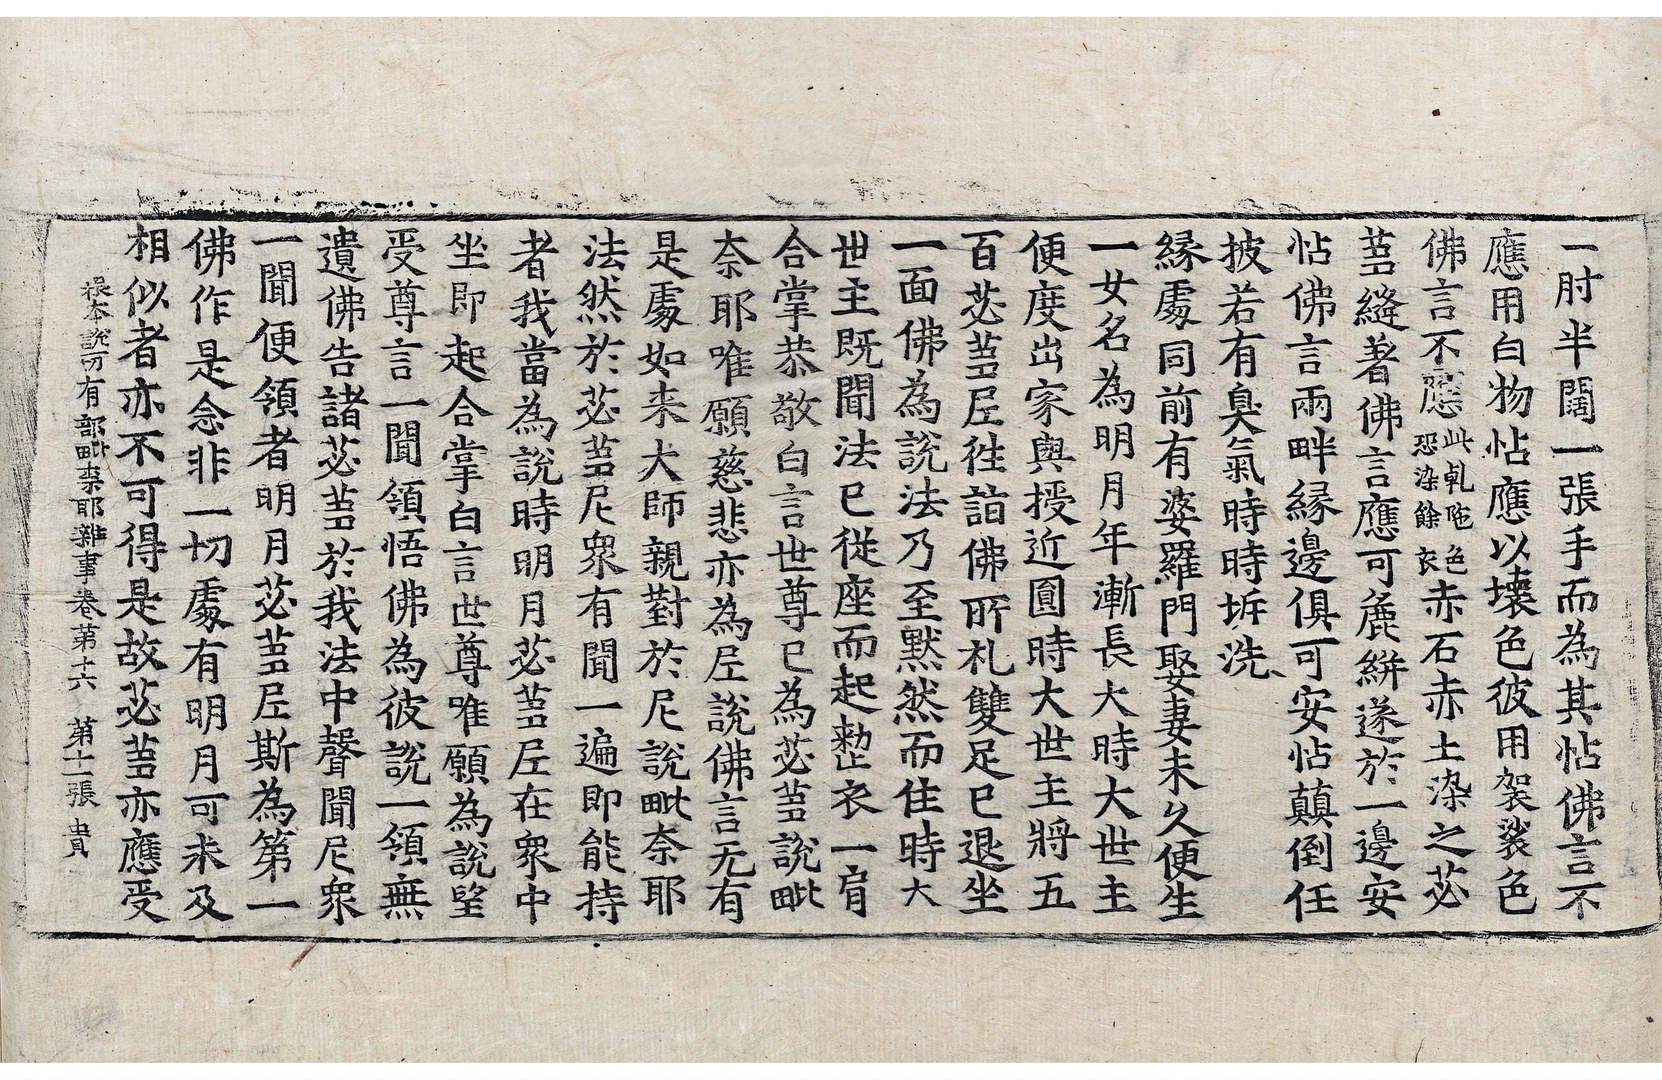 一肘半闊一張手而為其帖佛言不
應用白物帖應以壞色彼用袈裟色
佛言不應此乹陁色恐染餘衣赤石赤土染之苾
蒭縫著佛言應可麁絣遂於一邊安
帖佛言兩畔緣邊俱可安帖顛倒任
披若有臭氣時時拆洗
緣處同前有婆羅門娶妻未久便生
一女名為明月年漸長大時大世主
便度出家與授近圓時大世主將五
百苾蒭尼徃詣佛所礼雙足已退坐
一面佛為說法乃至默然而住時大
世主既聞法已從座而起整衣一肩
合掌恭敬白言世尊已為苾蒭說毗
奈耶唯願慈悲亦為尼說佛言无有
是處如来大師親對於尼說毗奈耶
法然於苾蒭尼衆有聞一遍即能持
者我當為說時明月苾蒭尼在衆中
坐即起合掌白言世尊唯願為說望
受尊言一聞領悟佛為彼說一領無
遺佛告諸苾蒭於我法中聲聞尼衆
一聞便領者明月苾蒭尼斯為第一
佛作是念非一切處有明月可未及
相似者亦不可得是故苾蒭亦應受
根本說一切有部毗柰耶雜事卷第十六 第十一張 貴